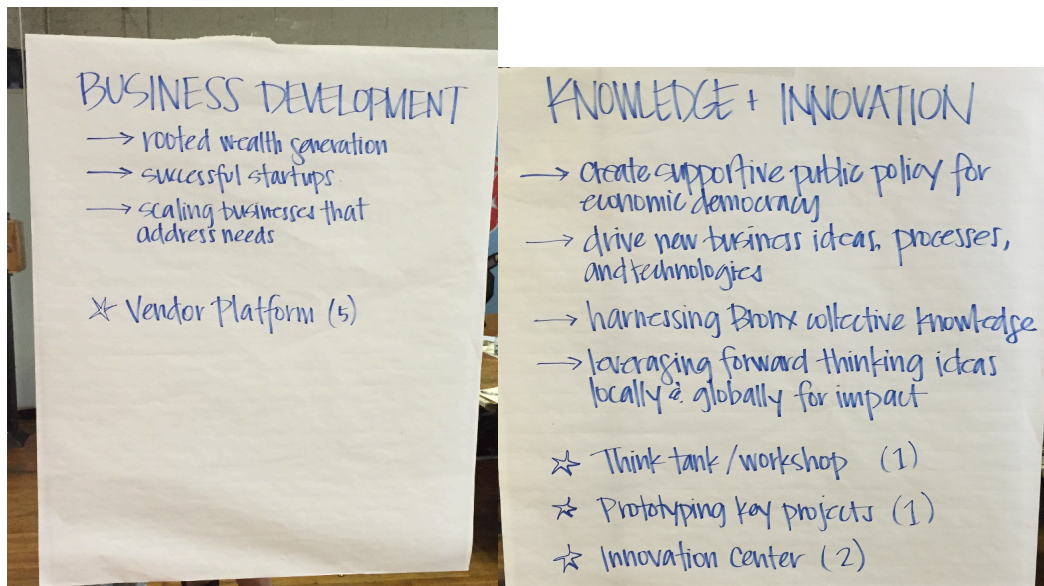 BUSINESS DEVELOPMENT
→ rooted wealth generation
→ successful startups
→ scaling businesses that
address needs
☆ Vendor Platform (5)
KNOWLEDGE + INNOVATION
→ create supportive public policy for
economic democracy
→ drive new business ideas, processes,
and technologies
→ harnessing Bronx collective knowledge
→ leveraging forward thinking ideas
locally & globally for impact
☆ Think tank / workshop (1)
☆ Prototyping key projects (1)
☆ Innovation Center (2)